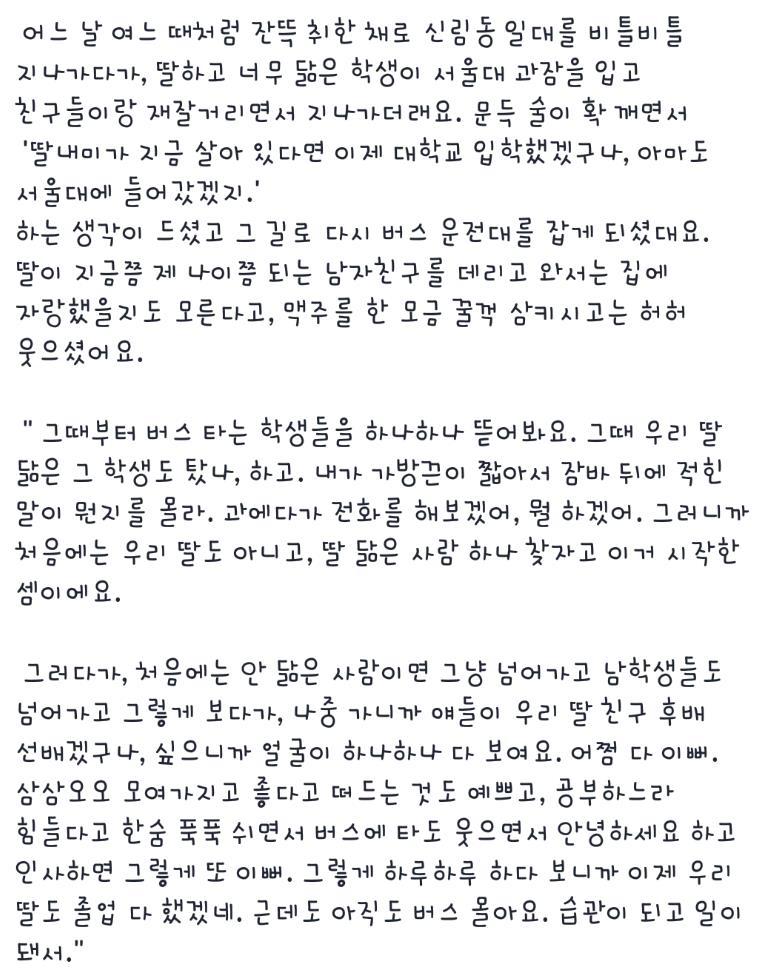 어느 날 여느 때처럼 잔뜩 취한 채로 신림동 일대를 비틀비틀
지나가다가, 딸하고 너무 닮은 학생이 서울대 과잠을 입고
친구들이랑 재잘거리면서 지나가더래요. 문득 술이 확 깨면서
'딸내미가 지금 살아 있다면 이제 대학교 입학했겠구나, 아마도
서울대에 들어갔겠지.'
하는 생각이 드셨고 그 길로 다시 버스 운전대를 잡게 되셨대요.
딸이 지금쯤 제 나이쯤 되는 남자친구를 데리고 와서는 집에
자랑했을지도 모른다고, 맥주를 한 모금 꿀꺽 삼키시고는 허허
웃으셨어요.
" 그때부터 버스 타는 학생들을 하나하나 뜯어봐요. 그때 우리 딸
닮은 그 학생도 탔나, 하고. 내가 가방끈이 짧아서 잠바 뒤에 적힌
말이 뭔지를 몰라. 과에다가 전화를 해보겠어, 뭘 하겠어. 그러니까
처음에는 우리 딸도 아니고, 딸 닮은 사람 하나 찾자고 이거 시작한
셈이에요.
그러다가, 처음에는 안 닮은 사람이면 그냥 넘어가고 남학생들도
넘어가고 그렇게 보다가, 나중 가니까 얘들이 우리 딸 친구 후배
선배겠구나, 싶으니까 얼굴이 하나하나 다 보여요. 어쩜 다 이뻐.
삼삼오오 모여가지고 좋다고 떠드는 것도 예쁘고, 공부하느라
힘들다고 한숨 푹푹 쉬면서 버스에 타도 웃으면서 안녕하세요 하고
인사하면 그렇게 또 이뻐. 그렇게 하루하루 하다 보니까 이제 우리
딸도 졸업 다 했겠네. 근데도 아직도 버스 몰아요. 습관이 되고 일이
돼서."